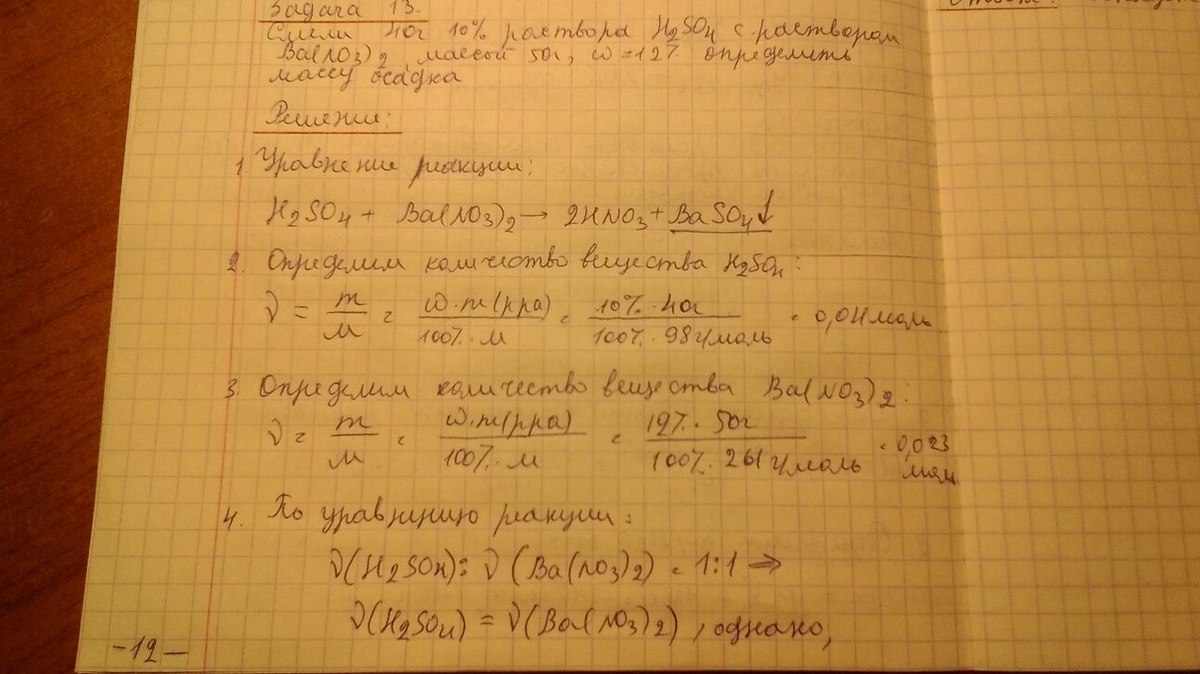 Задача 13.
Слили 40г 10% раствора H₂SO₄ с раствором
Ba(NO₃)₂ массой 50г, ω=12% определить
массу осадка
Решение:
1. Уравнение реакции:
H₂SO₄ + Ba(NO₃)₂ → 2HNO₃ + BaSO₄↓
2. Определим количество вещества H₂SO₄:
ν = m/M = ω·m(рра)/100%·M = 10%·40г/100%·98г/моль = 0,04 моль
3. Определим количество вещества Ba(NO₃)₂:
ν = m/M = ω·m(рра)/100%·M = 12%·50г/100%·261г/моль = 0,023
моль
4. По уравнению реакции:
ν(H₂SO₄):ν(Ba(NO₃)₂) = 1:1 ⇒
ν(H₂SO₄) = ν(Ba(NO₃)₂), однако,
-12-